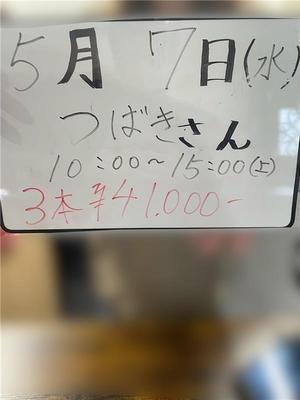 5月7日(水)
つばきさん
10:00~15:00(土)
3本¥41.000-